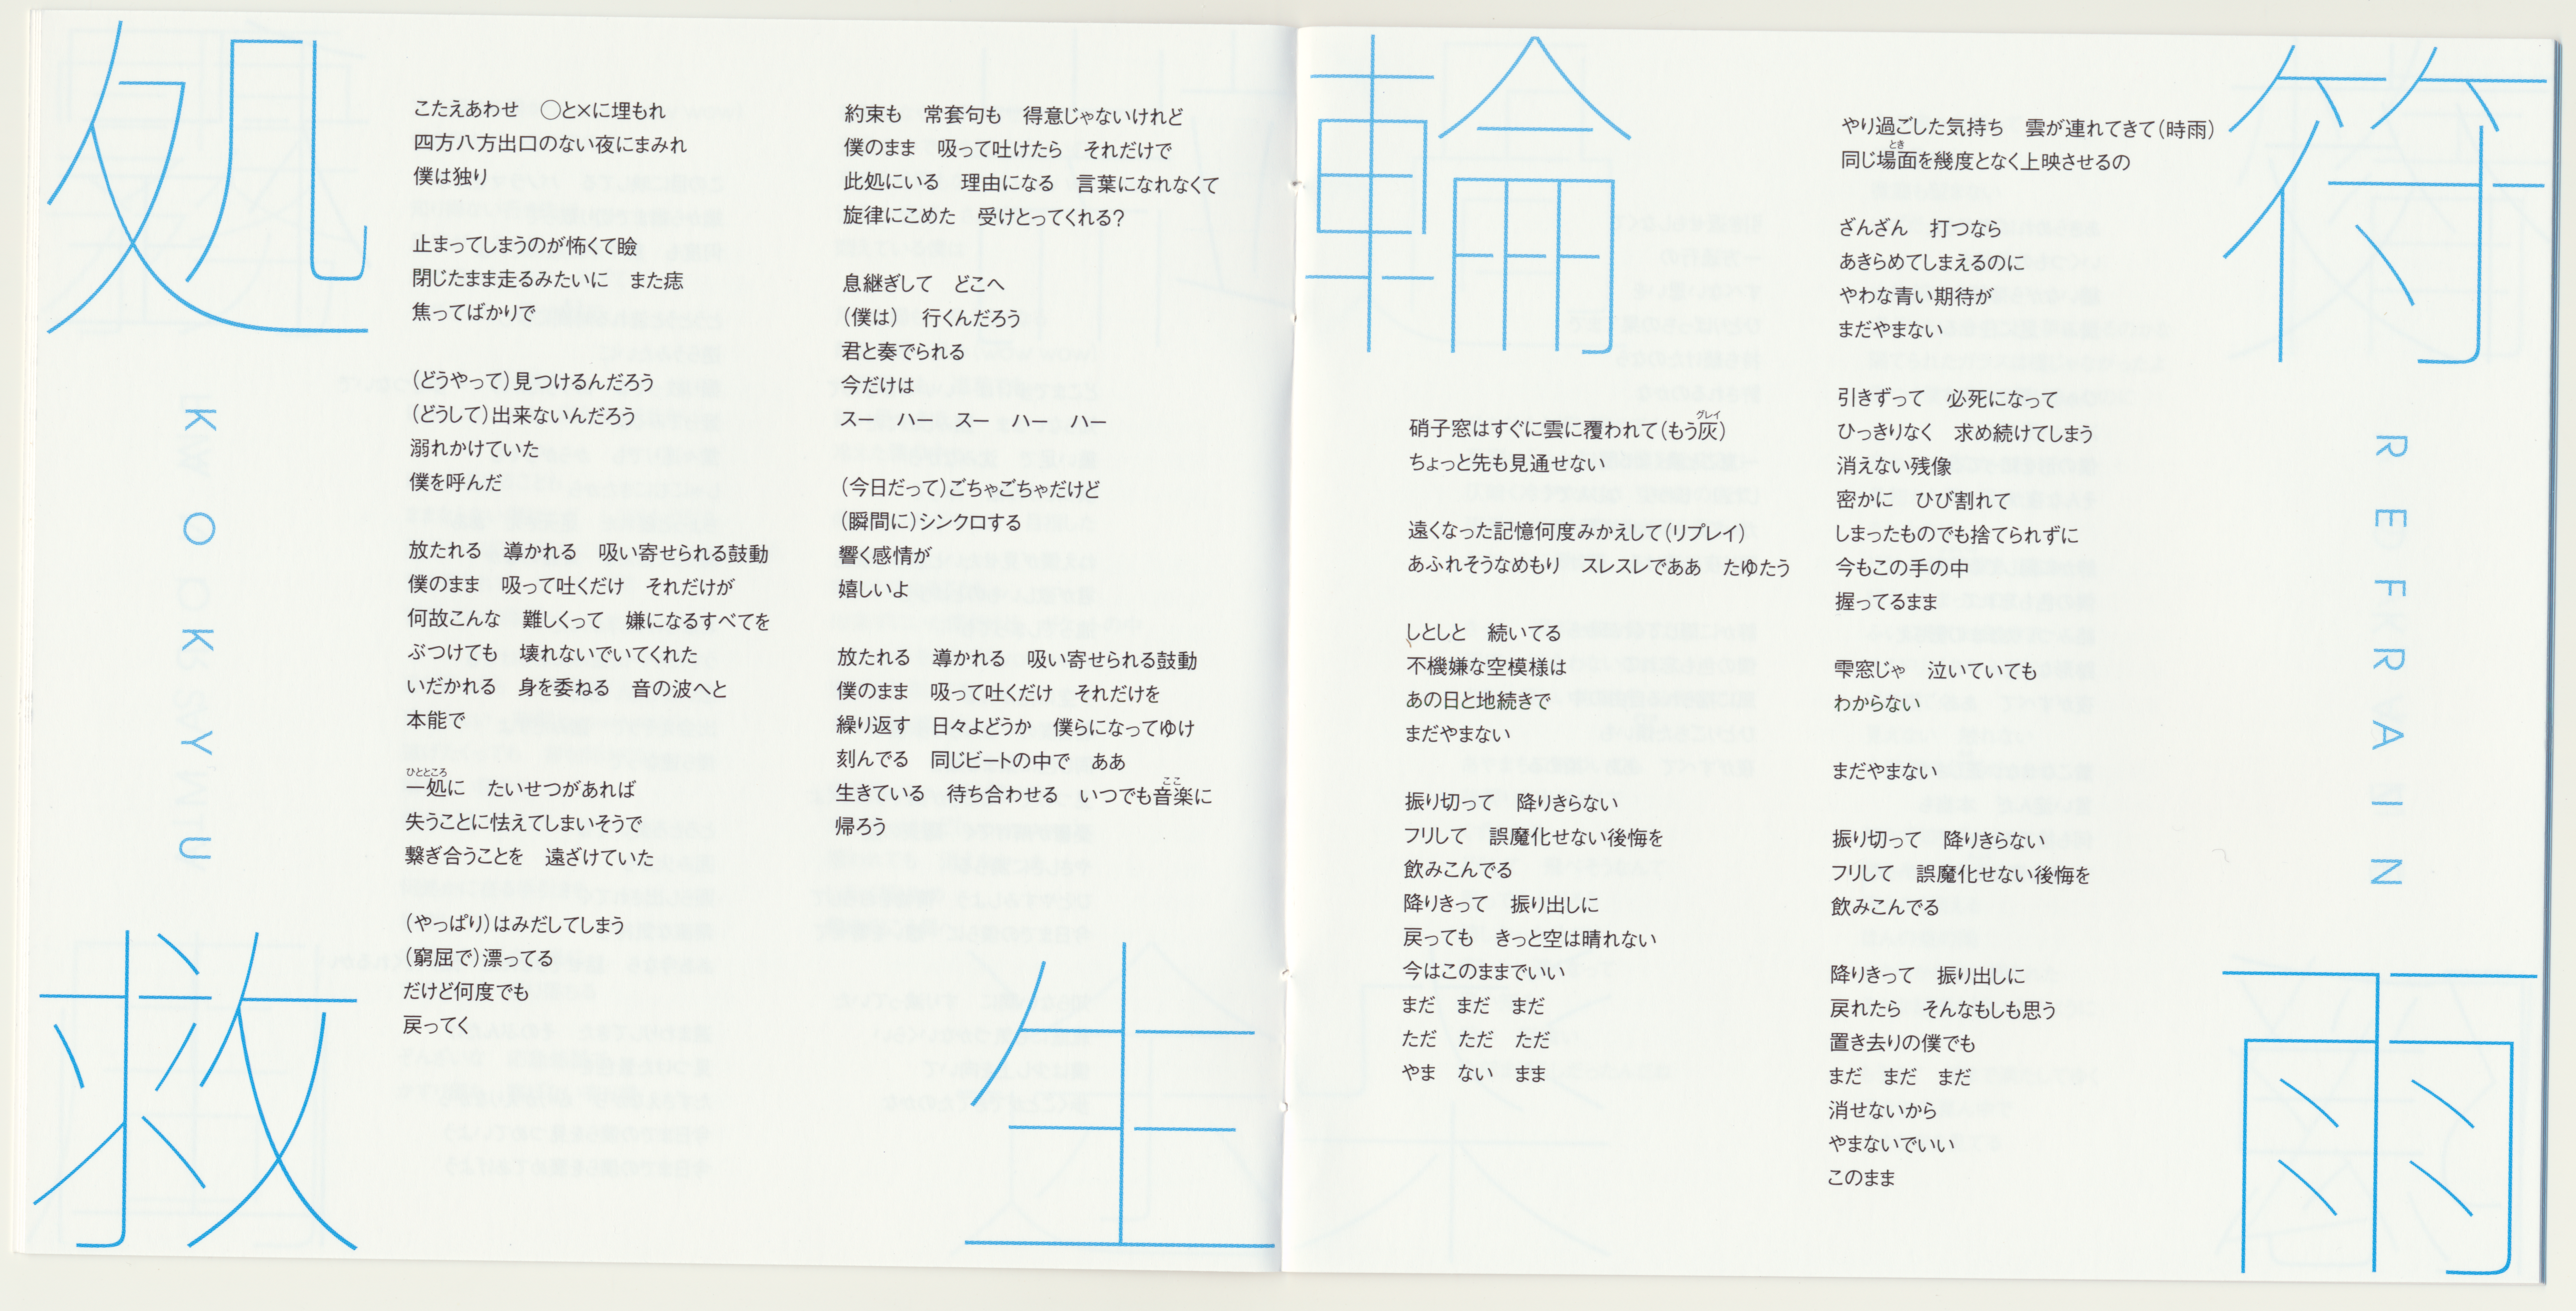 処
救
生
KOKYU
こたえあわせ　○と×に埋もれ
四方八方出口のない夜にまみれ
僕は独り
止まってしまうのが怖くて瞼
閉じたまま走るみたいに　また痣
焦ってばかりで
（どうやって）見つけるんだろう
（どうして）出来ないんだろう
溺れかけていた
僕を呼んだ
放たれる　導かれる　吸い寄せられる鼓動
僕のまま　吸って吐くだけ　それだけが
何故こんな　難しくって　嫌になるすべてを
ぶつけても　壊れないでいてくれた
いだかれる　身を委ねる　音の波へと
本能で
ひとところ
一処に　たいせつがあれば
失うことに怯えてしまいそうで
繋ぎ合うことを　遠ざけていた
（やっぱり）はみだしてしまう
（窮屈で）漂ってる
だけど何度でも
戻ってく
約束も　常套句も　得意じゃないけれど
僕のまま　吸って吐けたら　それだけで
此処にいる　理由になる　言葉になれなくて
旋律にこめた　受けとってくれる？
息継ぎして　どこへ
（僕は）　行くんだろう
君と奏でられる
今だけは
スー　ハー　スー　ハー　ハー
（今日だって）ごちゃごちゃだけど
（瞬間に）シンクロする
響く感情が
嬉しいよ
放たれる　導かれる　吸い寄せられる鼓動
僕のまま　吸って吐くだけ　それだけを
繰り返す　日々よどうか　僕らになってゆけ
刻んでる　同じビートの中で　ああ
ここ
生きている　待ち合わせる　いつでも音楽に
帰ろう
輪
符
雨
REFRAIN
グレイ
硝子窓はすぐに雲に覆われて（もう灰）
ちょっと先も見通せない
遠くなった記憶何度みかえして（リプレイ）
あふれそうなめもり　スレスレでああ　たゆたう
しとしと　続いてる
不機嫌な空模様は
あの日と地続きで
まだやまない
振り切って　降りきらない
フリして　誤魔化せない後悔を
飲みこんでる
降りきって　振り出しに
戻っても　きっと空は晴れない
今はこのままでいい
まだ　まだ　まだ
ただ　ただ　ただ
やま　ない　まま
やり過ごした気持ち　雲が連れてきて（時雨）
とき
同じ場面を幾度となく上映させるの
ざんざん　打つなら
あきらめてしまえるのに
やわな青い期待が
まだやまない
引きずって　必死になって
ひっきりなく　求め続けてしまう
消えない残像
密かに　ひび割れて
しまったものでも捨てられずに
今もこの手の中
握ってるまま
雫窓じゃ　泣いていても
わからない
まだやまない
振り切って　降りきらない
フリして　誤魔化せない後悔を
飲みこんでる
降りきって　振り出しに
戻れたら　そんなもしも思う
置き去りの僕でも
まだ　まだ　まだ
消せないから
やまないでいい
このまま